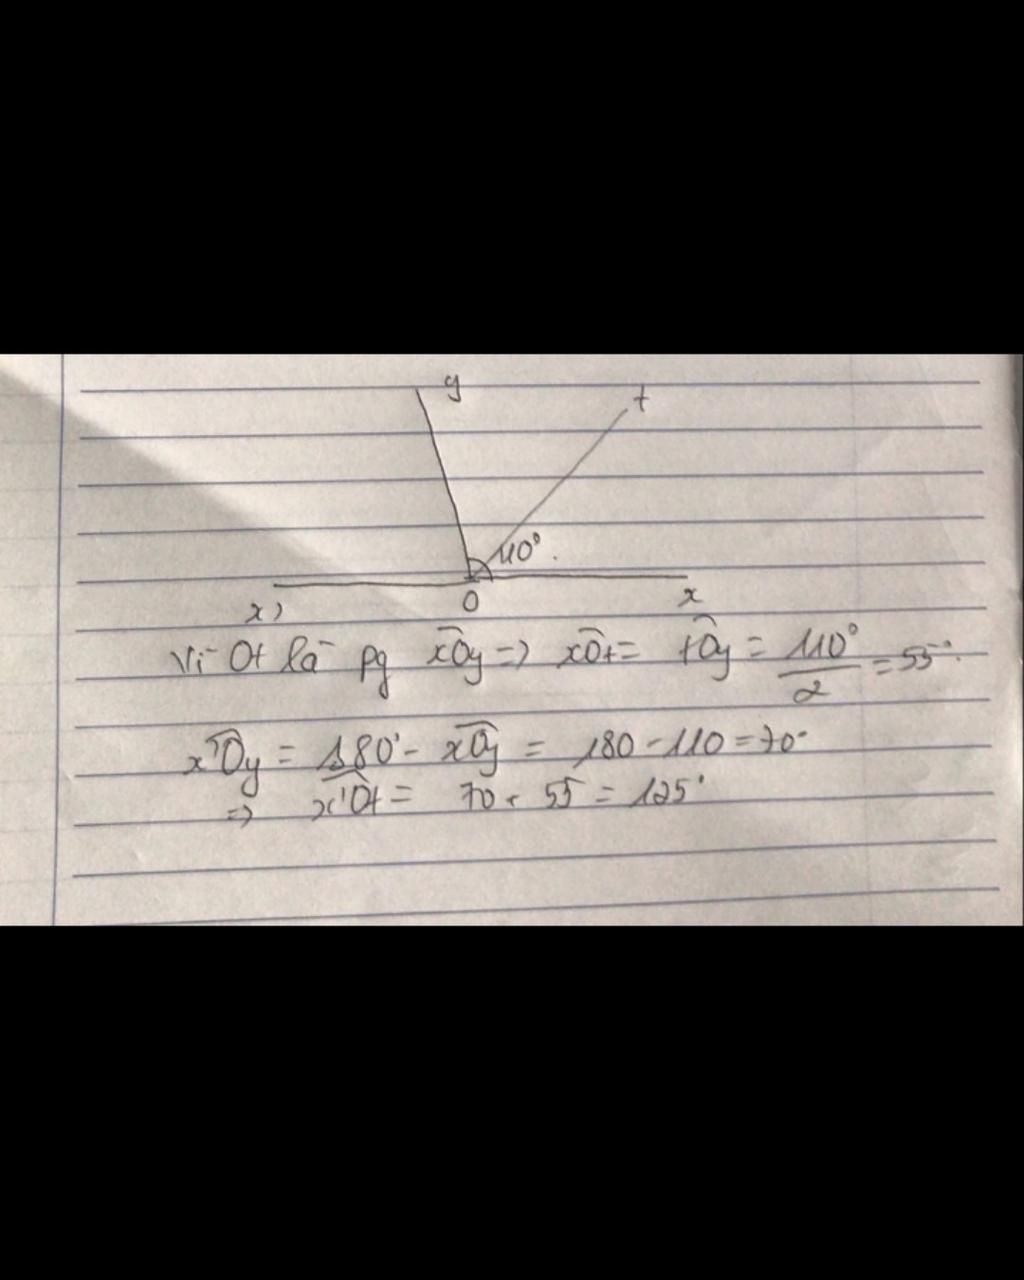 y t
110°
x' O x
Vì Ot là pg xÔy => xÔt = tÔy = 110°/2 = 55°.
x'Ôy = 180° - xÔy = 180 - 110 = 70°
=> x'Ôt = 70 + 55 = 125°